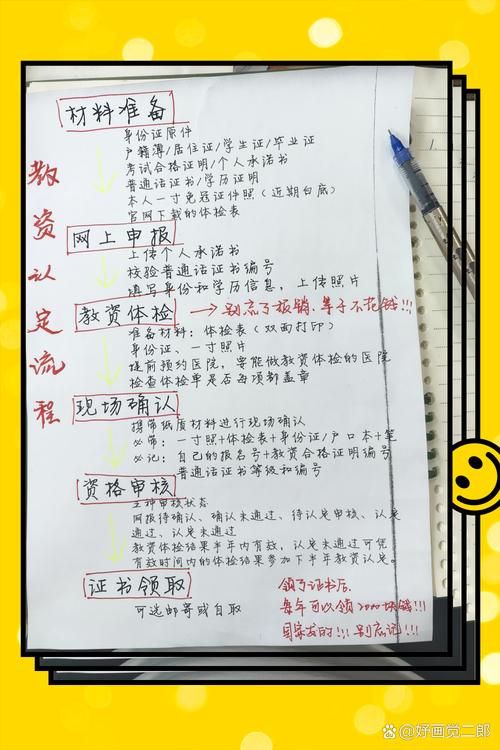 教资认定流程
材料准备
身份证原件
户籍簿/居住证/学生证/毕业证
考试合格证明/个人承诺书
普通话证书/学历证明
本人一寸免冠证件照（近期白底）
官网下载的体检表
网上申报
上传个人承诺书
校验普通话证书编号
填写身份和学历信息，上传照片
教资体检 → 别忘了报销，等于不花钱!!!
准备材料：体检表（双面打印）
身份证、一寸照片
提前预约医院，要能做教资体检的医院
检查体检单是否每项都盖章
现场确认
携带纸质材料进行现场确认
必带：一寸照+体检表+身份证/户口本+笔
必记：自己的报名号+教资合格证明编号
普通话证书等级和编号
资格审核
五种审核状态
网报待确认、确认未通过、待认定审核、认定
通过、认定未通过
教资体检结果半年内有效，认定未通过可凭
有效时间内的体检结果参加下半年教资认定。
证书领取
可选邮寄或自取
领了证书后
每年可以领2000块钱!!!
国家发的!!! 别忘记!!!
好画觉二郎